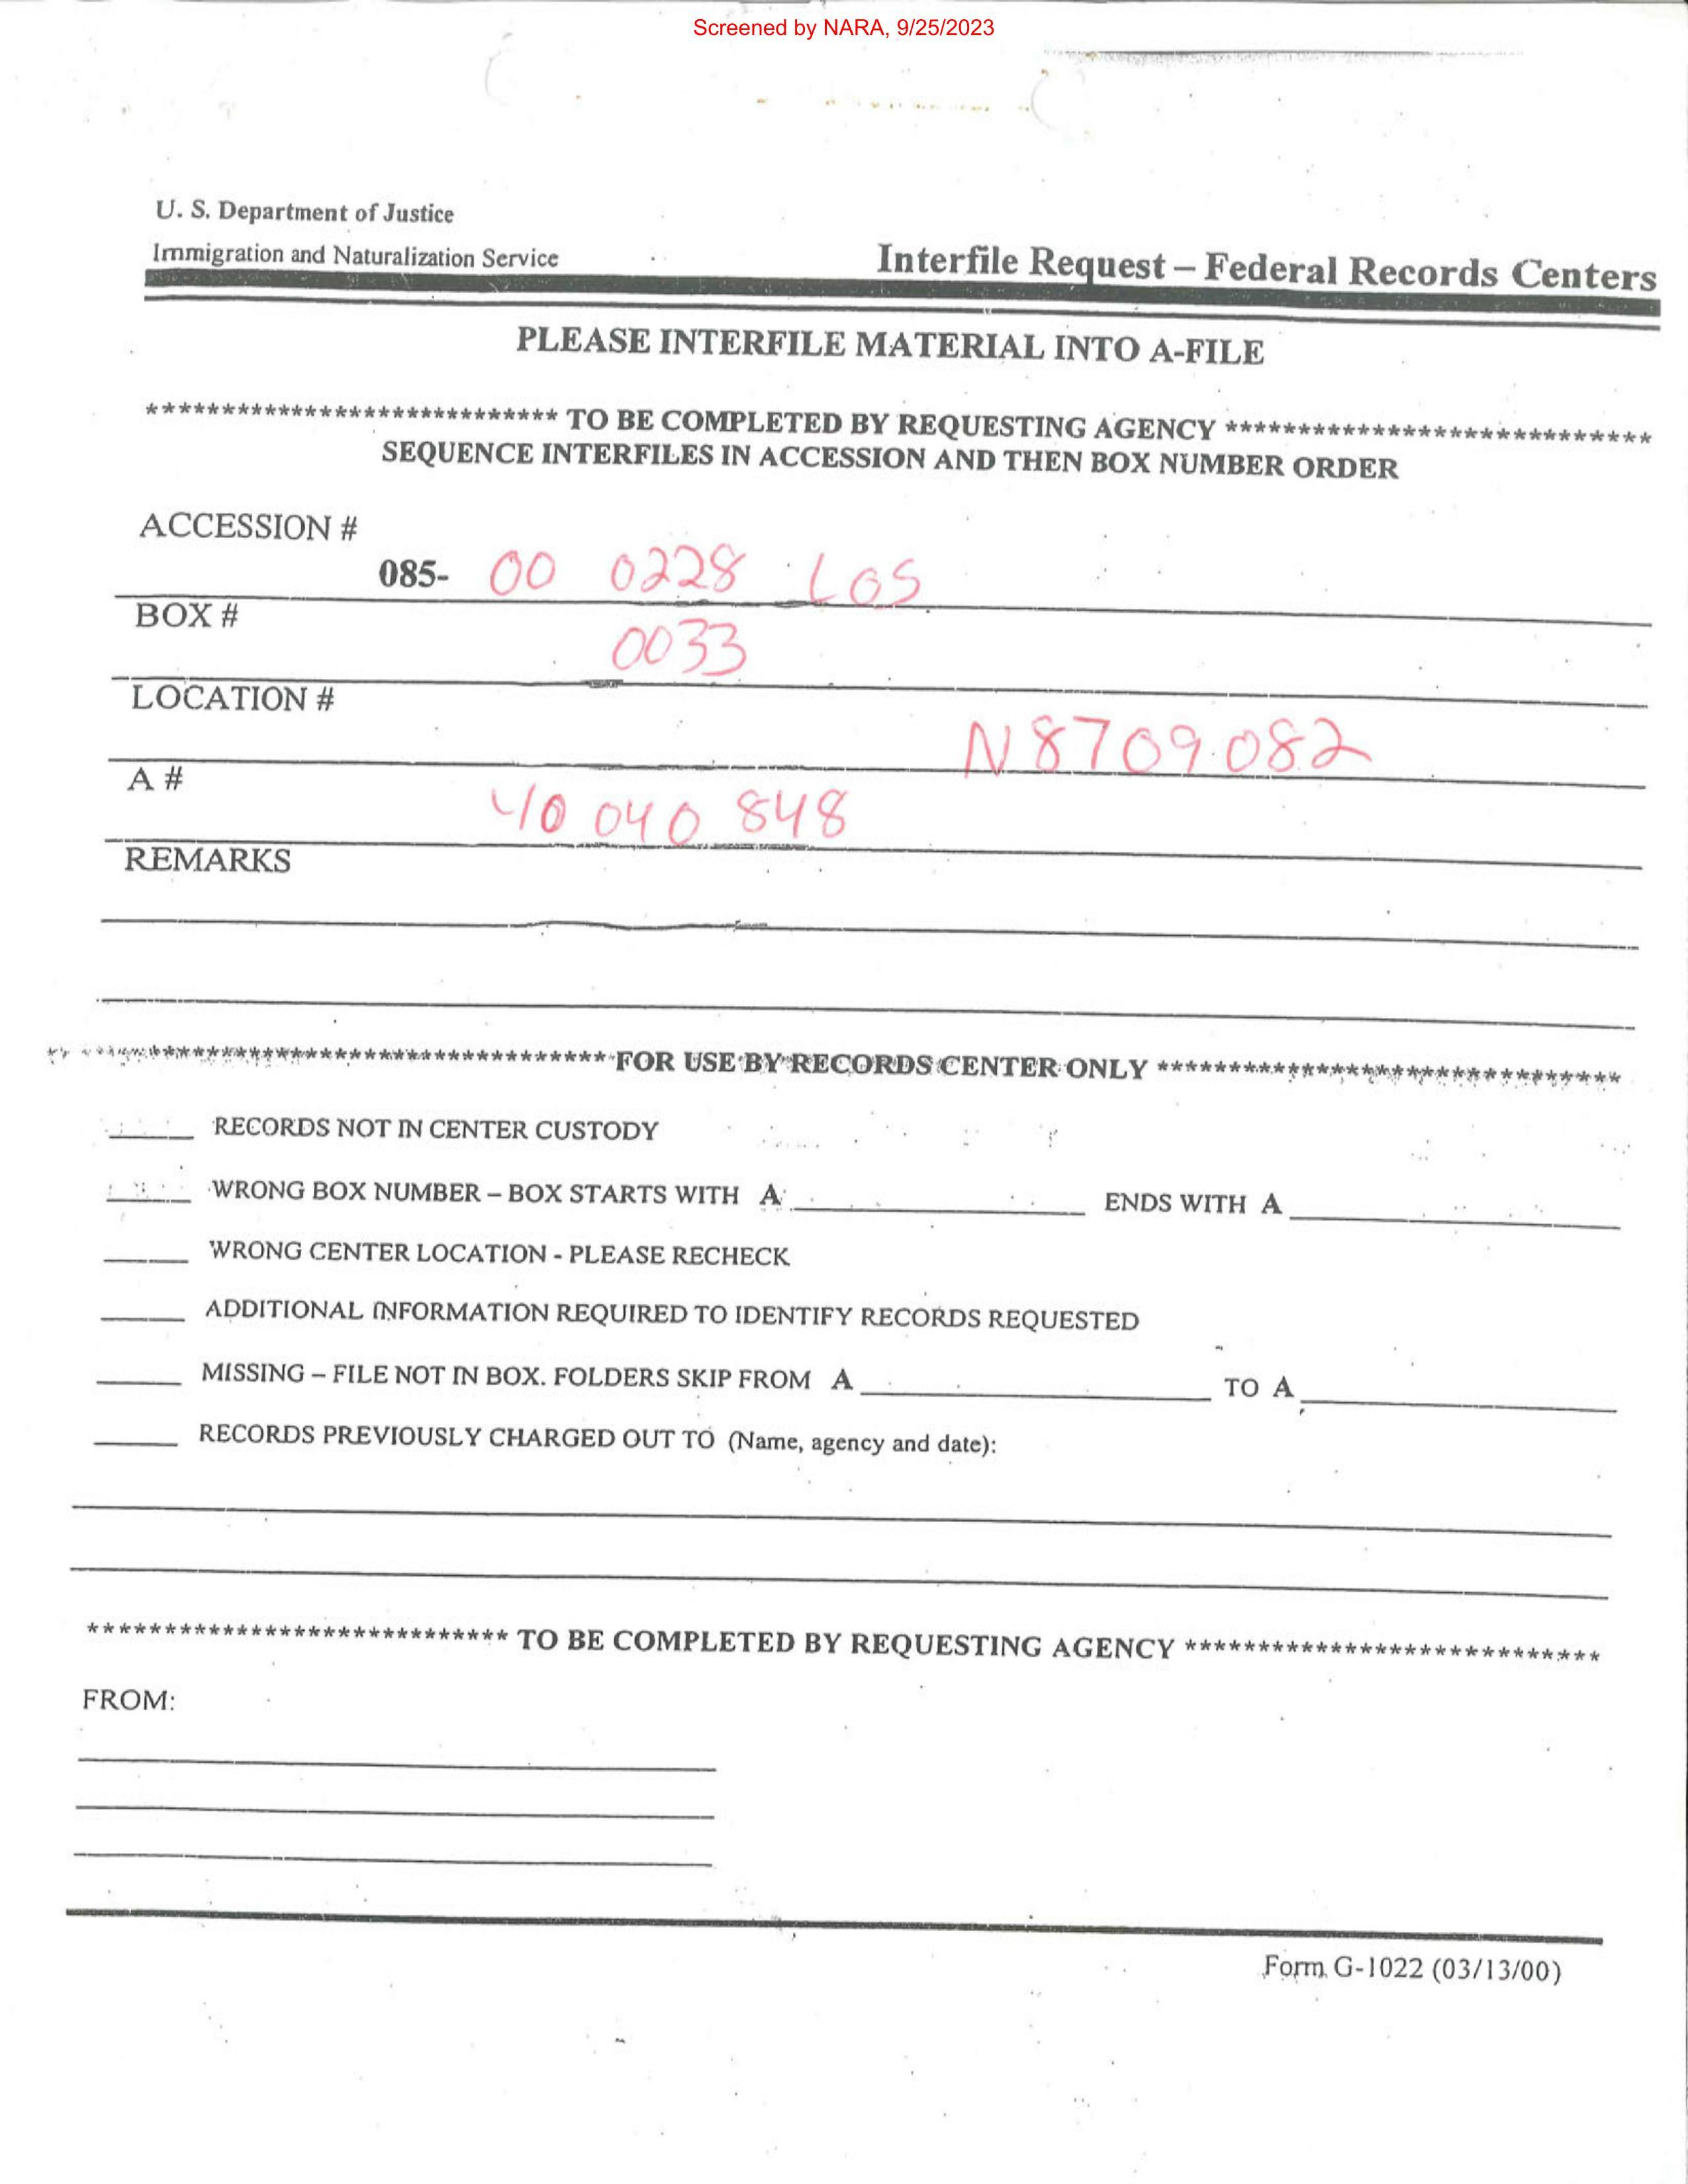 Screened by NARA, 9/25/2023
U. S. Department of Justice
Immigration and Naturalization Service
Interfile Request – Federal Records Centers
PLEASE INTERFILE MATERIAL INTO A-FILE
***************************** TO BE COMPLETED BY REQUESTING AGENCY *****************************
SEQUENCE INTERFILES IN ACCESSION AND THEN BOX NUMBER ORDER
ACCESSION #
085- 00 0228 LOS
BOX #
0033
LOCATION #
N8709082
A #
40 040 848
REMARKS
************************************ FOR USE BY RECORDS CENTER ONLY ********************************
_____ RECORDS NOT IN CENTER CUSTODY
_____ WRONG BOX NUMBER – BOX STARTS WITH A ____________________ ENDS WITH A ____________________
_____ WRONG CENTER LOCATION - PLEASE RECHECK
_____ ADDITIONAL INFORMATION REQUIRED TO IDENTIFY RECORDS REQUESTED
_____ MISSING – FILE NOT IN BOX. FOLDERS SKIP FROM A ____________________ TO A ____________________
_____ RECORDS PREVIOUSLY CHARGED OUT TO (Name, agency and date):
***************************** TO BE COMPLETED BY REQUESTING AGENCY *****************************
FROM:
Form G-1022 (03/13/00)